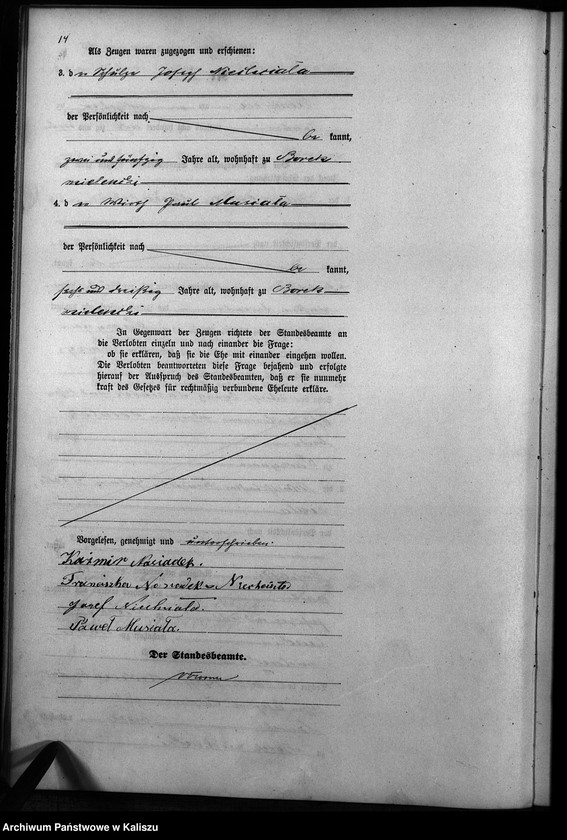 14
Als Zeugen waren zugezogen und erschienen:
3. d er Schulze Josef
der Persönlichkeit nach
be kannt,
zwei und fünfzig Jahre alt, wohnhaft zu Borek
mielencki
4. d er Wirth Paul Musiała
der Persönlichkeit nach
be kannt,
sechs und dreißig Jahre alt, wohnhaft zu Borek
mielencki
In Gegenwart der Zeugen richtete der Standesbeamte an
die Verlobten einzeln und nach einander die Frage:
ob sie erklären, daß sie die Ehe mit einander eingehen wollen.
Die Verlobten beantworteten diese Frage bejahend und erfolgte
hierauf der Ausspruch des Standesbeamten, daß er sie nunmehr
kraft des Gesetzes für rechtmäßig verbundene Eheleute erkläre.
Vorgelesen, genehmigt und unterschrieben.
Kazmir
Franciszka
Josef
Paweł Musiała.
Der Standesbeamte.
Archiwum Państwowe w Kaliszu